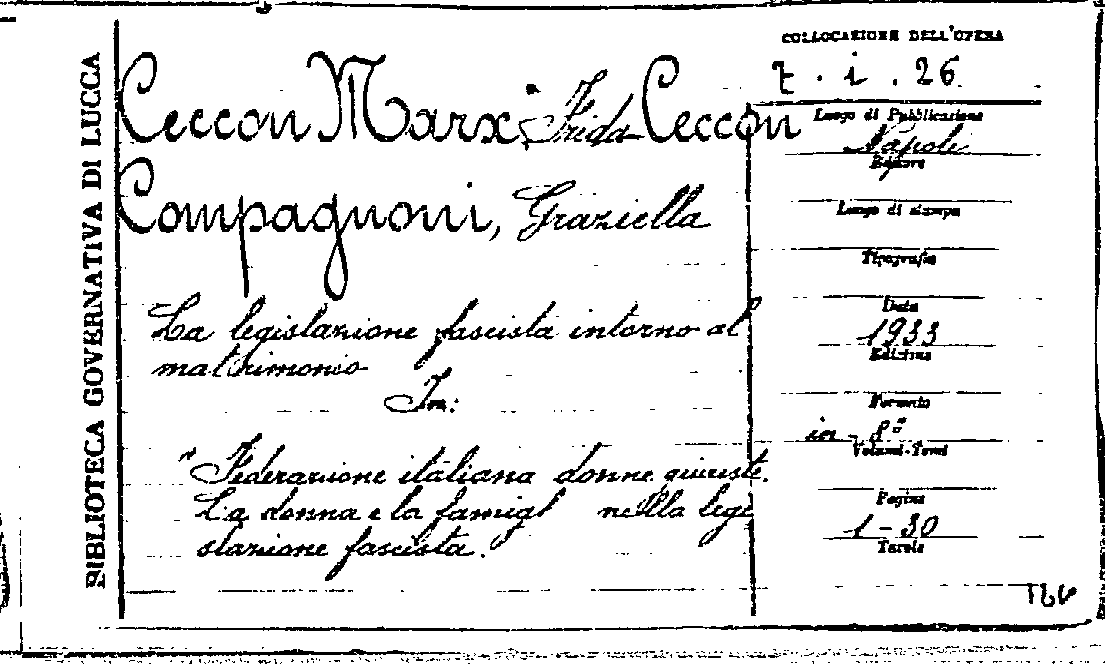 BIBLIOTECA GOVERNATIVA DI LUCCA
Ceccon Marx, Frida Ceccon
Compagnoni, Graziella
La legislazione fascista intorno al
matrimonio
In:
"Federazione italiana donne giuriste.
La donna e la famigl nella legi
slazione fascista.
COLLOCAZIONE DELL'OPERA
7. i. 26
Luogo di Pubblicazione
Napoli
Editore
Luogo di stampa
Tipografia
Data
1933
Edizione
Formato
in-8°
Volumi-Tomi
Pagine
1-30
Tavole